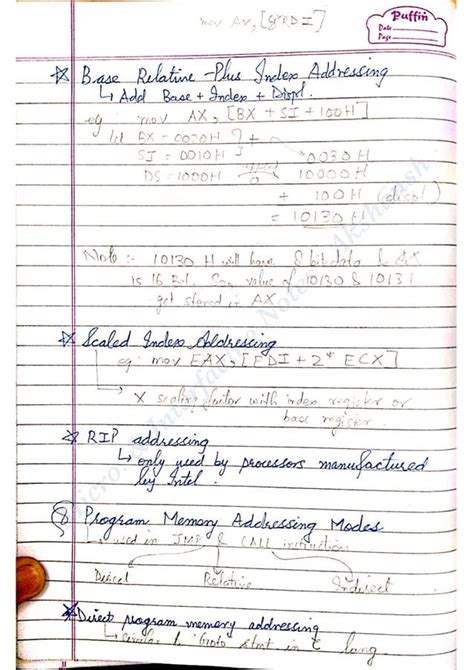 mov AX, [ DI]
Puffin
Date
Page
Base Relative-Plus Index Addressing
Add Base + Index + Displ.
eg: mov AX, [BX + SI + 100H]
let BX = 0020H +
SI = 0010H 0030H
DS = 1000H 10000H
+ 100H (displ)
= 10130H
Note:- 10130 H will have 8 bit data & AX
is 16 Bit. So, value of 10130 & 10131
get stored in AX
Scaled Index Addressing
eg: mov EAX, [EDI + 2* ECX]
X scaling factor with index register or
base register.
RIP addressing
only used by processors manufactured
by Intel.
8 Program Memory Addressing Modes
used in JMP & CALL instruction
Direct Relative Indirect
Direct program memory addressing
similar to Goto stmt in C lang